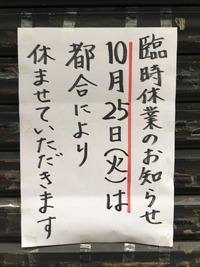 臨時休業のお知らせ
10月25日(火)は
都合により
休ませていただきます